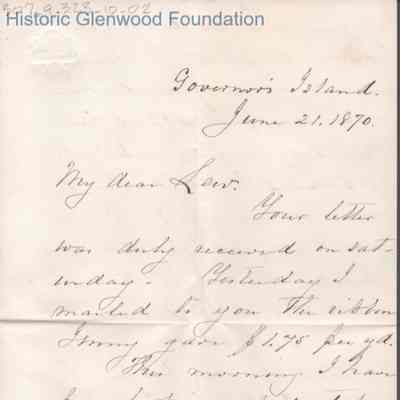 307.9.323-10-02
Historic Glenwood Foundation
Governor's Island.
June 21. 1870.
My dear Lew.
Your letter
was duly received on sat-
urday - Yesterday I
mailed to you the ribbon
gave $1.75 per yd.
This morning I have